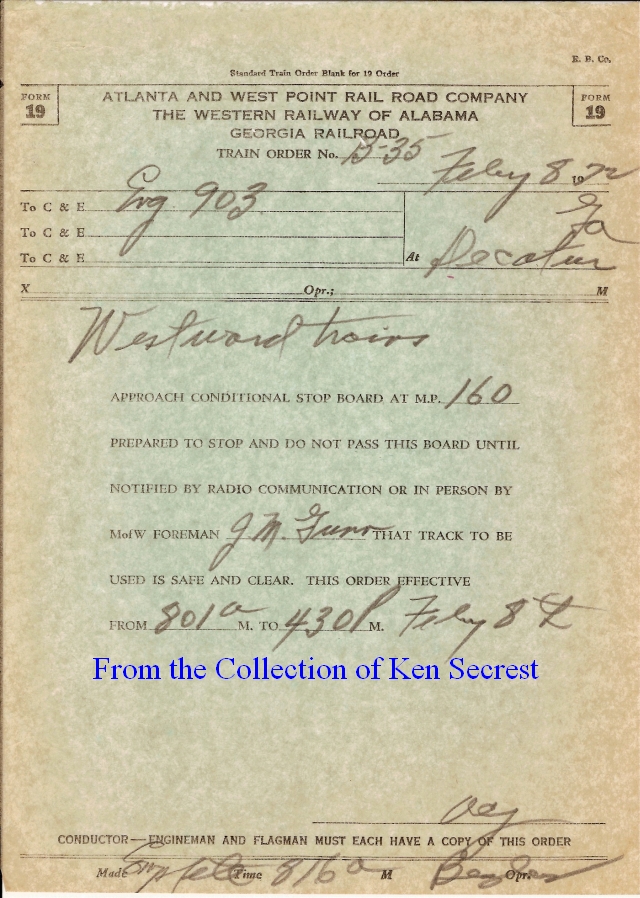 R. B. Co.
Standard Train Order Blank for 19 Order
FORM 19
ATLANTA AND WEST POINT RAIL ROAD COMPANY
FORM 19
THE WESTERN RAILWAY OF ALABAMA
GEORGIA RAILROAD
TRAIN ORDER No. B-35
Feby 8 1972
To C & E Eng 903
Ga
To C & E
To C & E
At Decatur
X Opr.; M
Westward trains
APPROACH CONDITIONAL STOP BOARD AT M.P. 160
PREPARED TO STOP AND DO NOT PASS THIS BOARD UNTIL
NOTIFIED BY RADIO COMMUNICATION OR IN PERSON BY
MofW FOREMAN J M. Gunn THAT TRACK TO BE
USED IS SAFE AND CLEAR. THIS ORDER EFFECTIVE
FROM 801 a M. TO 430 P M. Feby 8th
From the Collection of Ken Secrest
CONDUCTOR—ENGINEMAN AND FLAGMAN MUST EACH HAVE A COPY OF THIS ORDER
Made Time 816 a M Opr.